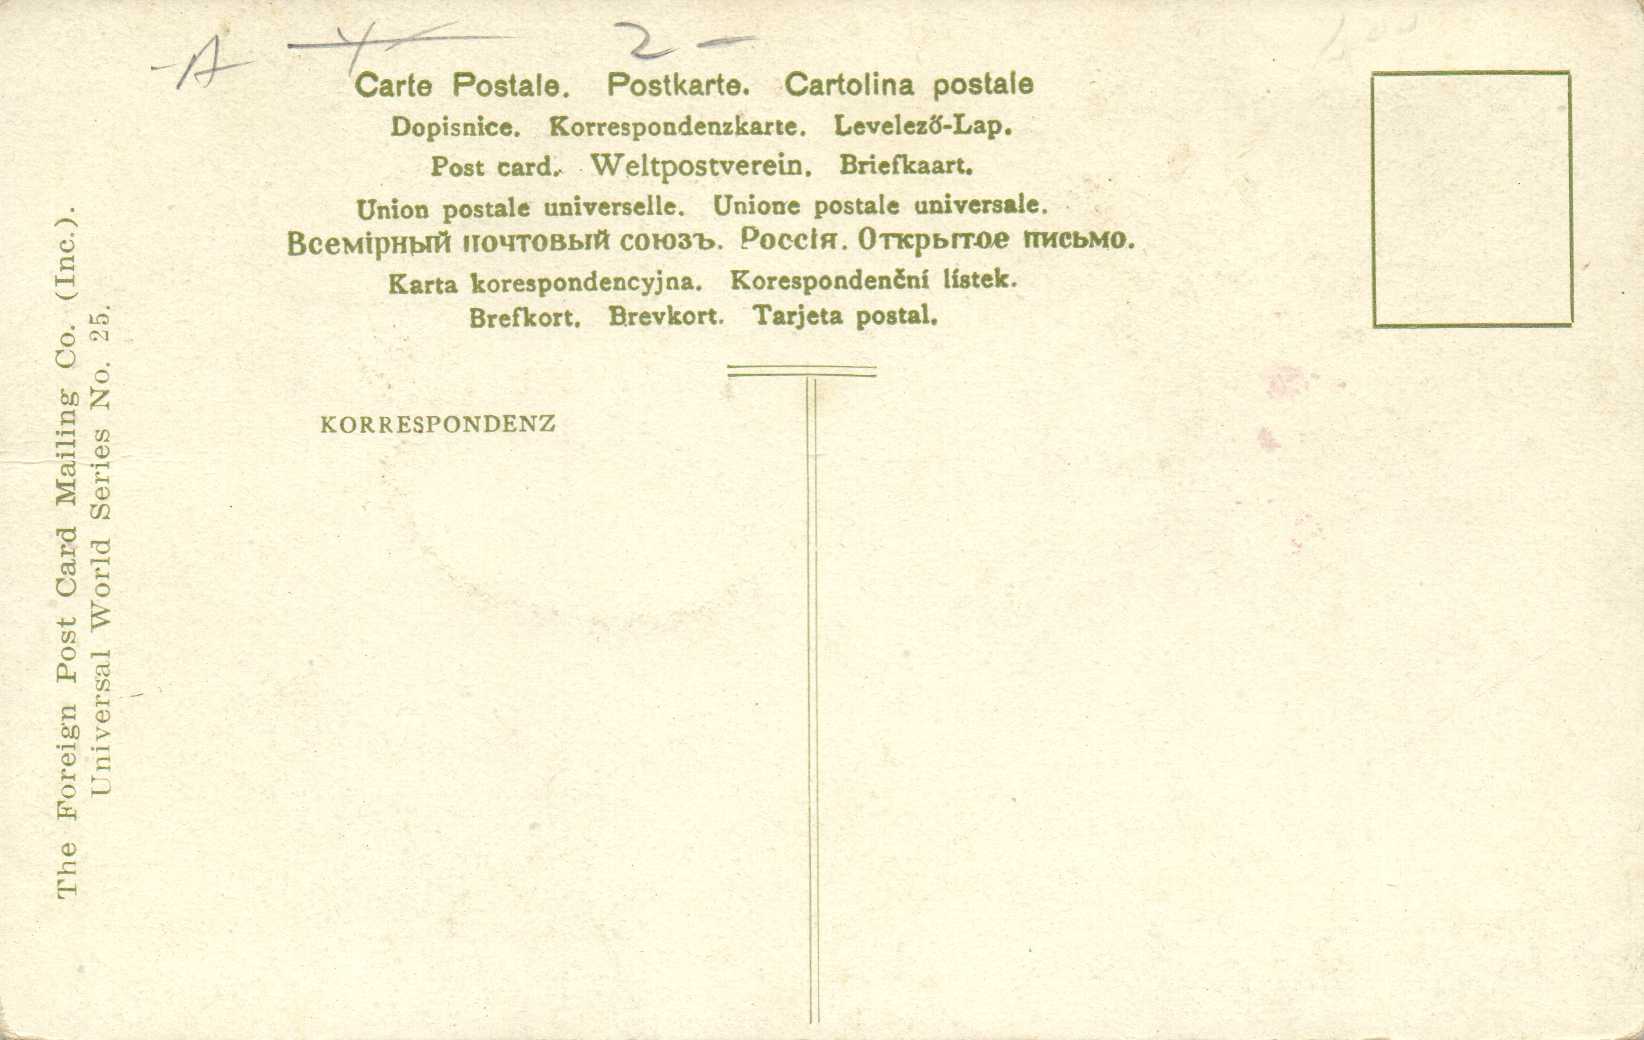 A 2 -
Carte Postale. Postkarte. Cartolina postale
Dopisnice. Korrespondenzkarte. Levelező-Lap.
Post card. Weltpostverein. Briefkaart.
Union postale universelle. Unione postale universale.
Всемірный почтовый союзъ. Россія. Открытое письмо.
Karta korespondencyjna. Korespondenční lístek.
Brefkort. Brevkort. Tarjeta postal.
KORRESPONDENZ
The Foreign Post Card Mailing Co. (Inc.).
Universal World Series No. 25.